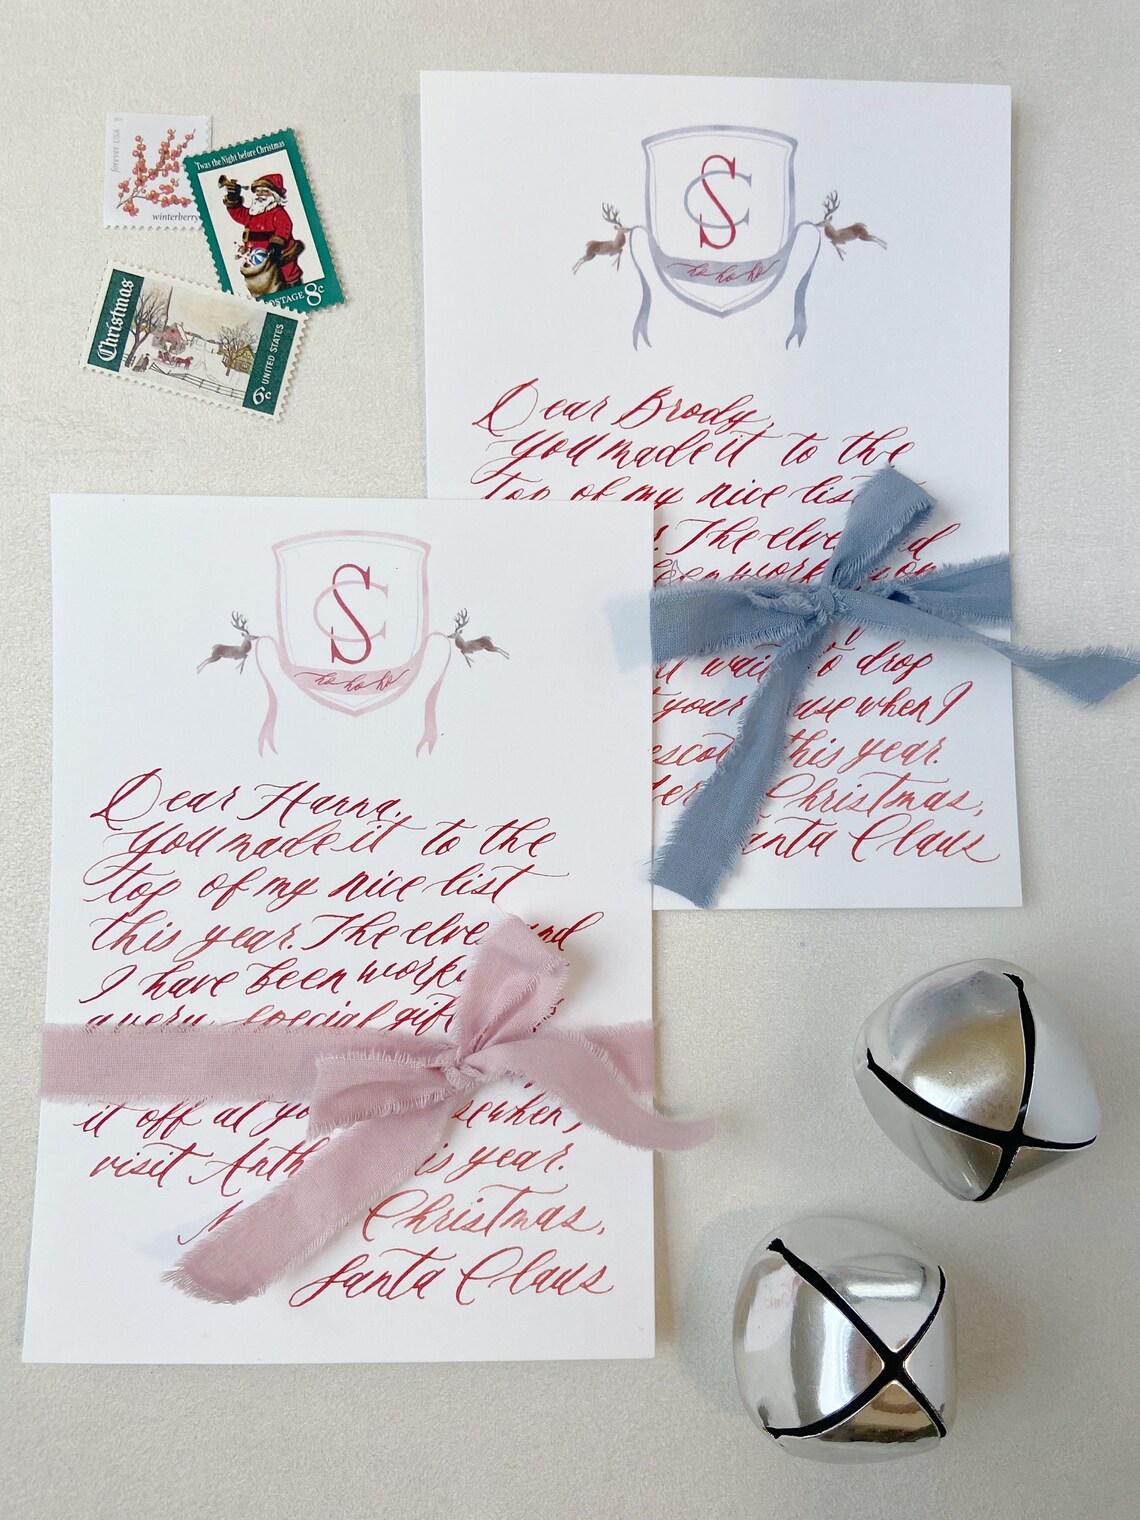 forever USA
winterberry
'Twas the Night before Christmas
POSTAGE 8c
Christmas
UNITED STATES
6c
SC
ho ho ho
Dear Brody,
You made it to the
top of my nice list
The elve
been work on
wait to drop
your use when I
this year.
Christmas,
Santa Claus
SC
ho ho ho
Dear Hanna,
You made it to the
top of my nice list
this year. The elves and
I have been work
a very special gift
it off at yo se when I
visit Anth is year.
Christmas,
Santa Claus